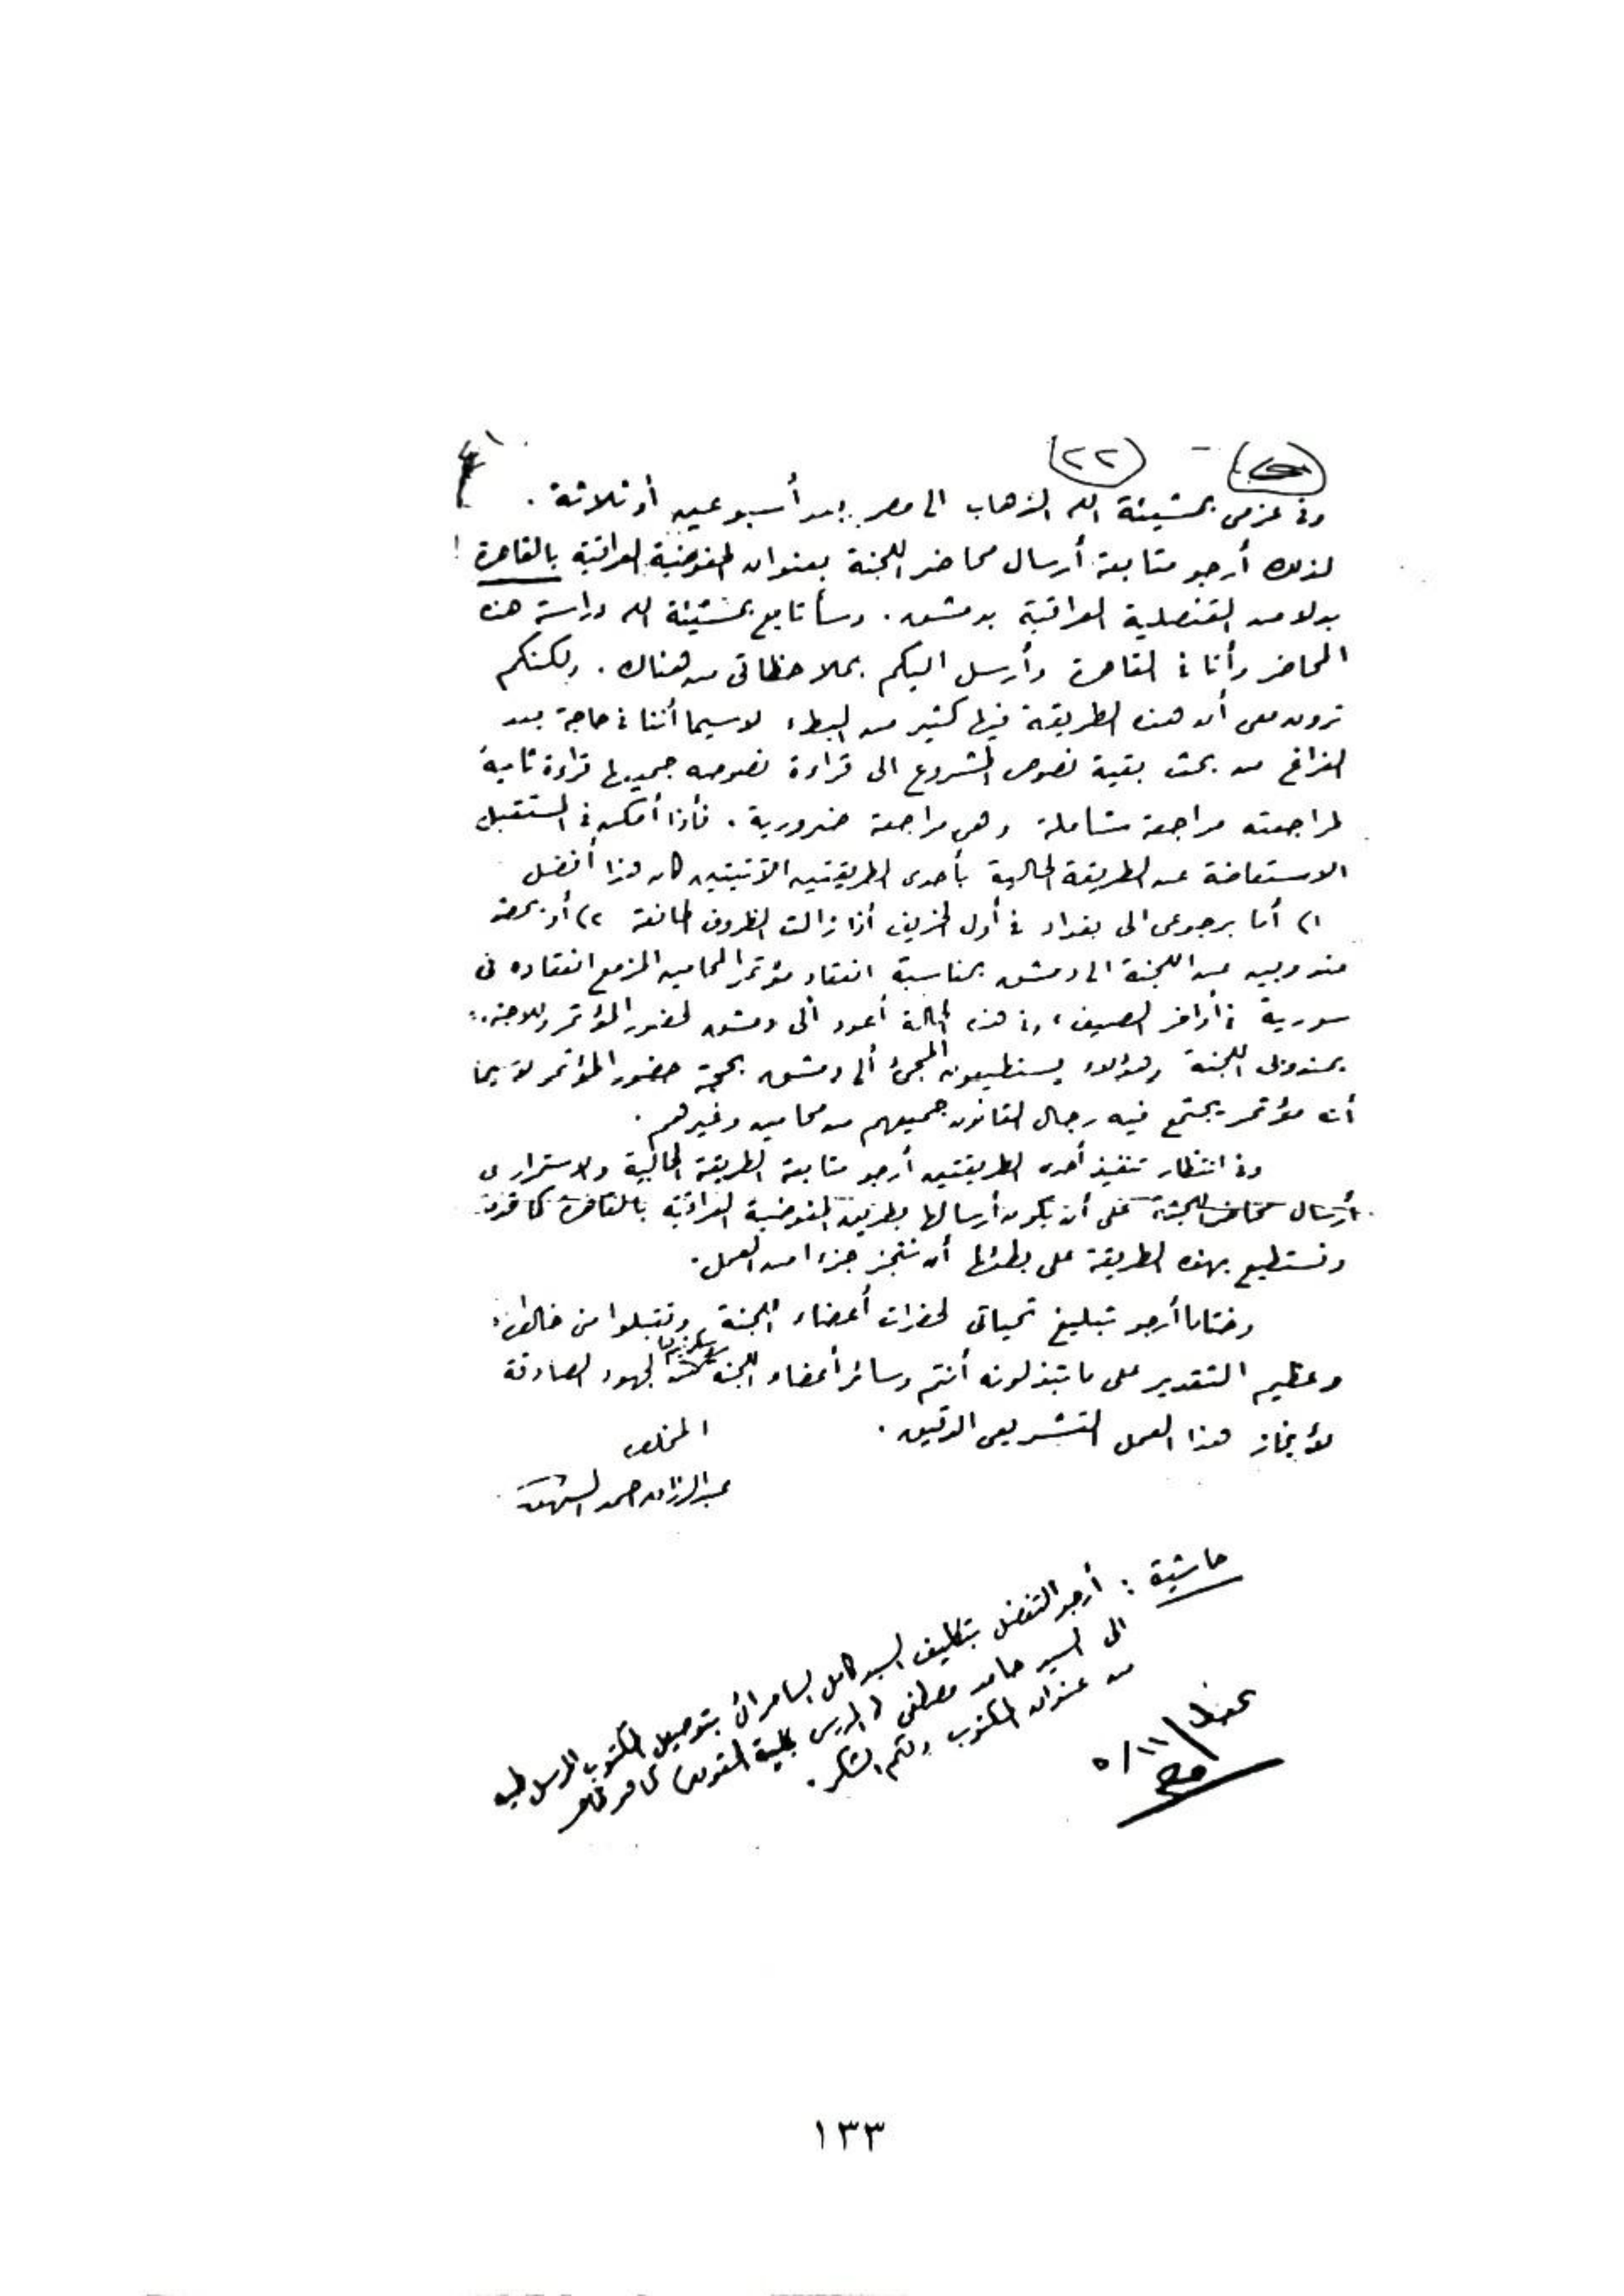 (٢٢) -
وفى عزمى بمشيئة الله الذهاب الى مصر بعد أسبوعين أو ثلاثة .
لذلك أرجو متابعة أرسال محاضر اللجنة بعنوان المفوضية العراقية بالقاهرة !
بدلا من القنصلية العراقية بدمشق . وسأتابع بمشيئة الله دراسة هذه
المحاضر وأنا فى القاهرة وأرسل اليكم بملاحظاتى من هناك . ولكنكم
ترون معى أن هذه الطريقة فيها كثير من البطء لاسيما أننا فى حاجة بعد
الفراغ من بحث بقية نصوص المشروع الى قراءة نصوصه جميعها قراءة ثانية
لمراجعته مراجعة شاملة وهى مراجعة ضرورية . فأذا أمكن فى المستقبل
الاستعاضة عن الطريقة الحالية بأحدى الطريقتين الآتيتين كان هذا أفضل
١) أما برجوعى الى بغداد فى أول الخريف أذا زالت الظروف المانعة ٢) أو بحضور
مندوبين عن اللجنة الى دمشق بمناسبة انعقاد مؤتمر المحامين المزمع انعقاده فى
سورية فى أواخر الصيف ، وفى هذه الحالة أعود ألى دمشق لحضور المؤتمر وللاجتماع
بمندوبى اللجنة وهؤلاء يستطيعون المجئ ألى دمشق بحجة حضور المؤتمر لاسيما
أنه مؤتمر يجتمع فيه رجال القانون جميعهم من محامين وغيرهم .
وفى انتظار تنفيذ أحدى الطريقتين أرجو متابعة الطريقة الحالية والاستمرار فى
أرسال محاضر اللجنة على أن يكون أرسالها بطريق المفوضية العراقية بالقاهرة كما قدمت
ونستطيع بهذه الطريقة على بطئها أن ننجز جزءا من العمل .
وختاما أرجو تبليغ تحياتى لحضرات أعضاء اللجنة وتقبلوا من خالص
وعظيم التقدير على ما تبذلونه أنتم وسائر أعضاء اللجنة من الجهود الصادقة
لأنجاز هذا العمل التشريعى الدقيق .
المخلص
عبد الرزاق احمد السنهورى
حاشية : أرجو التفضل بتكليف السيد كامل السامرائى بتوصيل المكتوب المرسل طيه
الى السيد حامد مصطفى المدرس بكلية الحقوق كما هو ظاهر
من عنوان المكتوب ولكم الشكر .
يحفظ
١١/٥
١٣٣